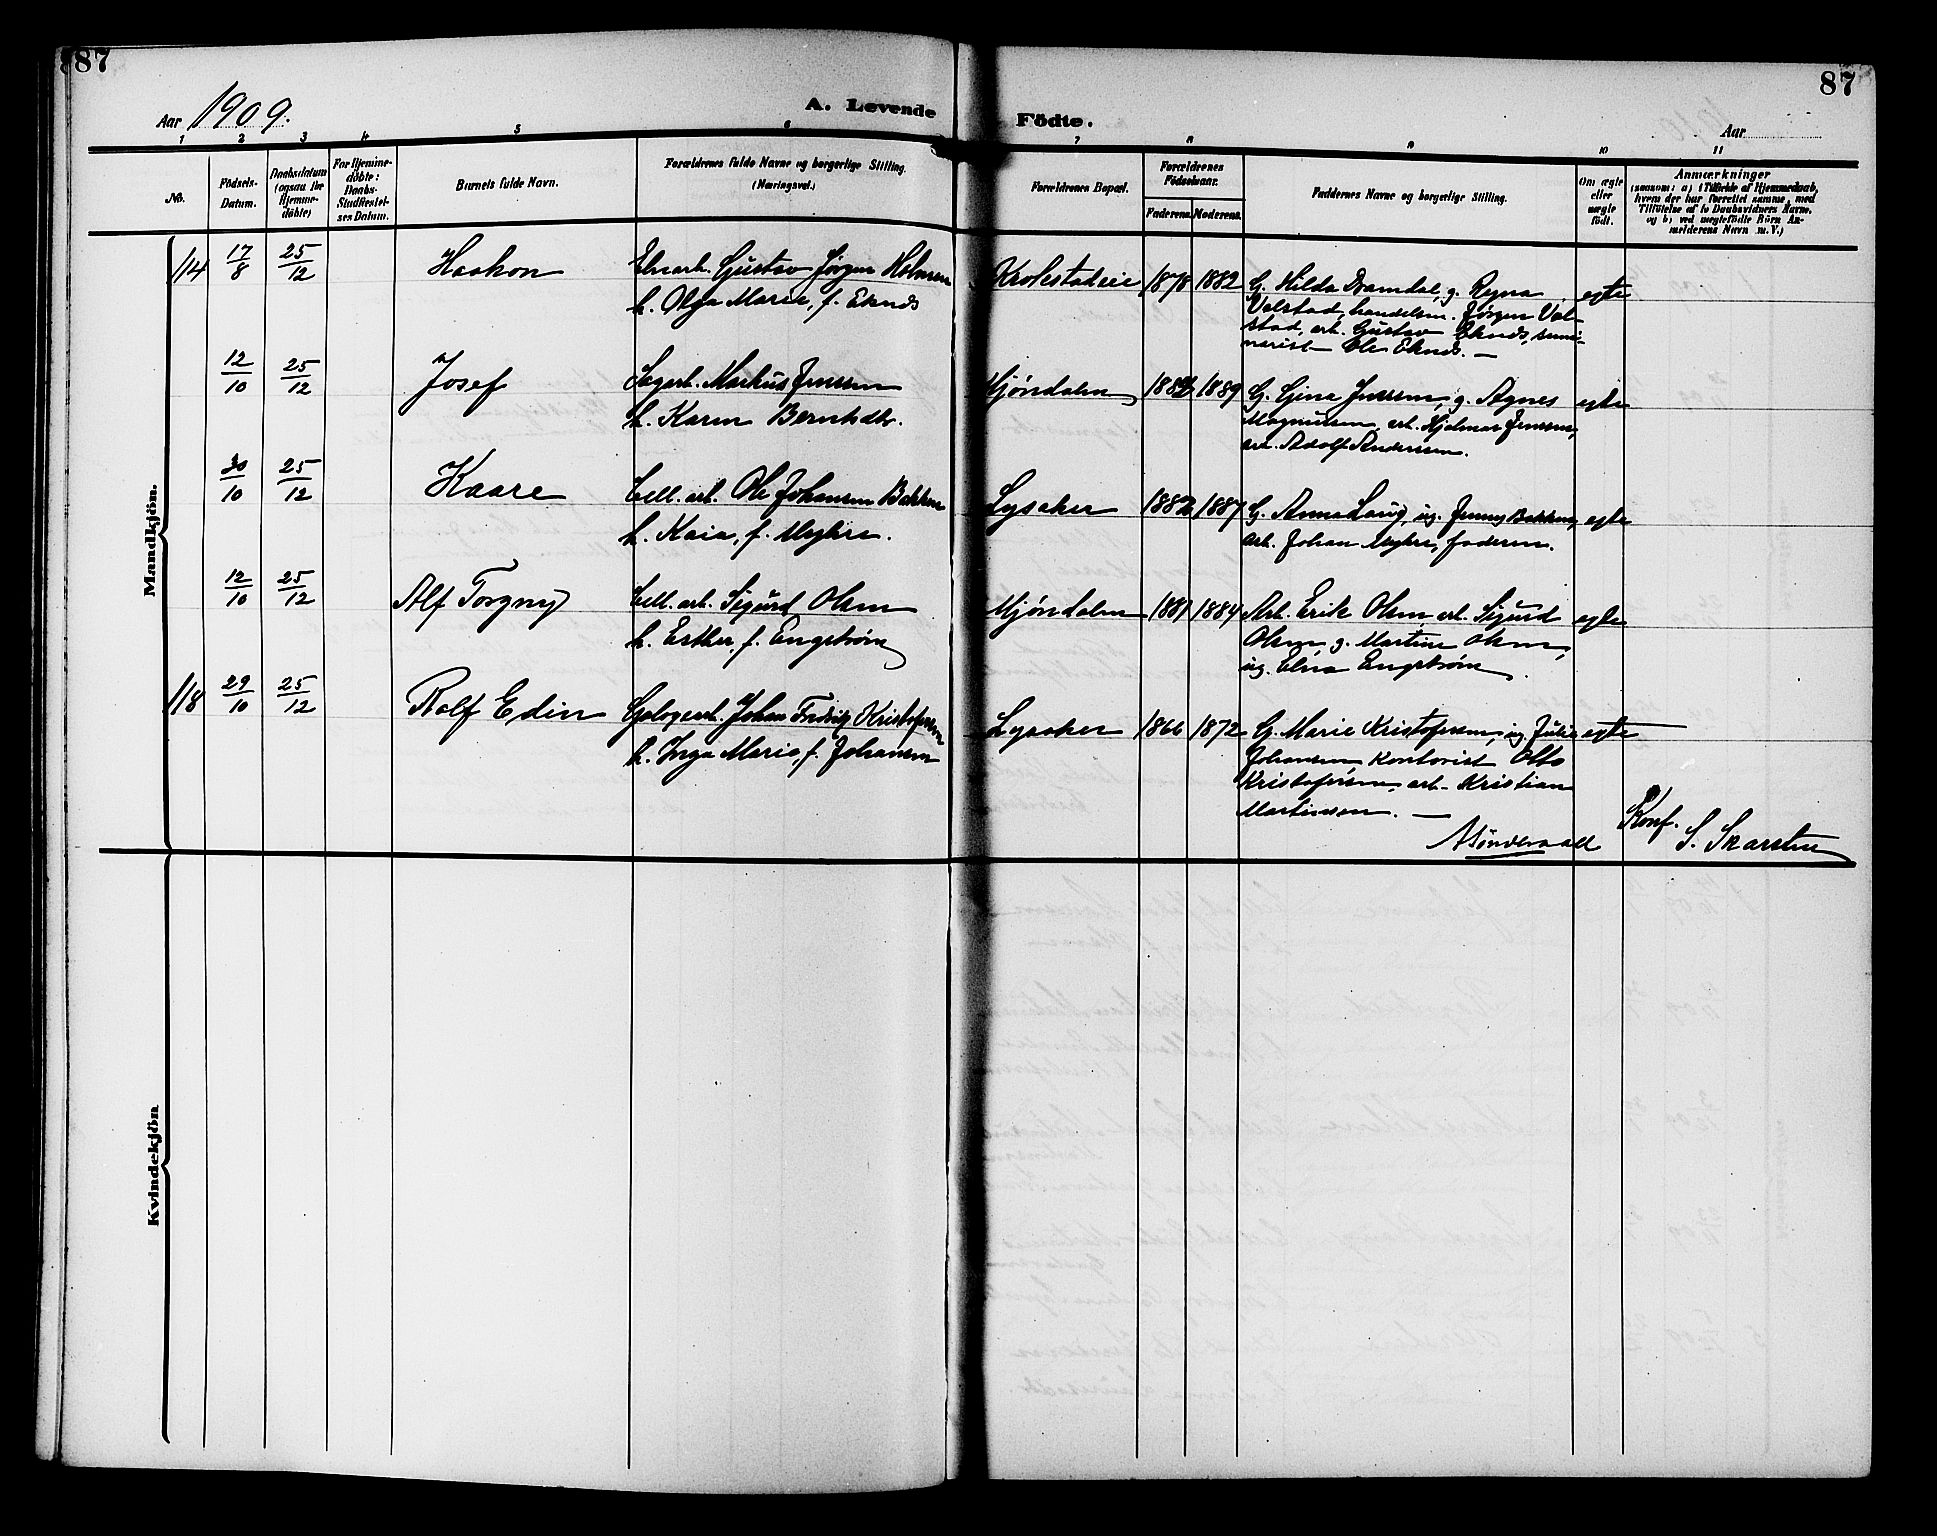 87
87
Aar 1909.
A. Levende
Födte.
Aar
1 2 3 4 5 6 7 8 9 10 11
No.
Födsels-
Datum.
Daabsdatum
(ogsaa for
Hjemme-
döbte)
For Hjemme-
döbte:
Daabs-
Stadfæstel-
ses Datum.
Barnets fulde Navn.
Forældrenes fulde Navne og borgerlige Stilling.
(Næringsvei.)
Forældrenes Bopæl.
Forældrenes
Födselsaar.
Faderens. Moderens.
Faddernes Navne og borgerlige Stilling.
Om ægte
eller
uægte
födt.
Anmærkninger
(saasom: a) i Tilfælde af Hjemmedaab,
hvem der har forrettet samme, med
Tilföielse af to Daabsvidners Navne,
og b) ved uægtefödte Börn An-
melderens Navn m. V.)
Mandkjön.
114 17/8 25/12 Haakon
Gustav Jørgen Holmsen
h. Olga Marie, f. Eknes
Krokstadeie 1878 1882
G. Hilda Damdal, g. Ragna
Velstad, handelsm. Jørgen Vel-
stad, arb. Gustav Eknes, semi-
narist Ole Eknes. —
egte
12/10 25/12 Josef
Sagarb. Markus Jenssen
h. Karen Berntsdtr.
Mjøndalen 1889
G. Gina Jenssen, g. Agnes
Magnussen, arb. Hjalmar Jenssen,
arb. Adolf Anderssen.
egte
30/10 25/12 Kaare
Cell. arb. Ole Johansen Bakken
h. Kaia, f. Myhre.
Lysaker 1882 1887
G. Anna Laug, ug. Jenny Bakken,
arb. Johan Myhre, faderen.
egte
12/10 25/12 Alf Torgny
Cell. arb. Sigurd Olsen
h. Esther, f. Engstrøm
Mjøndalen 1881 1884
Arb. Erik Olsen, arb. Sigurd
Olsen, g. Martine Olsen,
ug. Elna Engstrøm.
egte
118 29/10 25/12 Rolf Edin
Johan Fredrik Kristofersen
h. Inga Marie, f. Johansen
Lysaker 1866 1872
G. Marie Kristofersen, ug. Julie
Johansen, kontorist Otto
Kristofersen, arb. Kristian
Martinsen. —
egte
Konf.
S. Skarsten
Kvindekjön